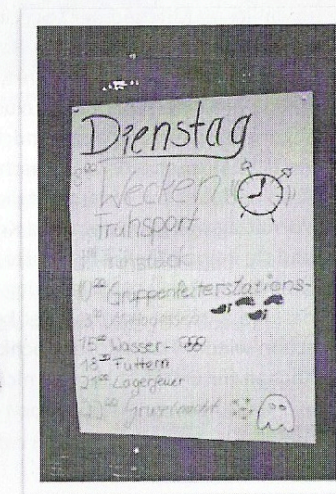 Dienstag
8⁰⁰ Wecken
Frühsport
Frühstück
10³⁰ Gruppenleiterstations-
15⁰⁰ Wasser-
18³⁰ Futtern
21⁰⁰ Lagerfeuer
22⁰⁰ Gruselnacht